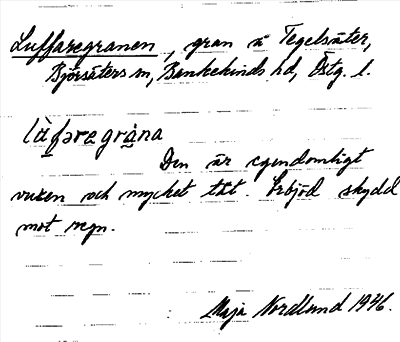 Luffaregranen, gran å Tegelsäter,
Björsäters sn, Bankekinds hd, Östg. l.
làfəregràna
Den är egendomligt
vuxen och mycket tät. Erbjöd skydd
mot regn.
Maja Nordlund 1946.